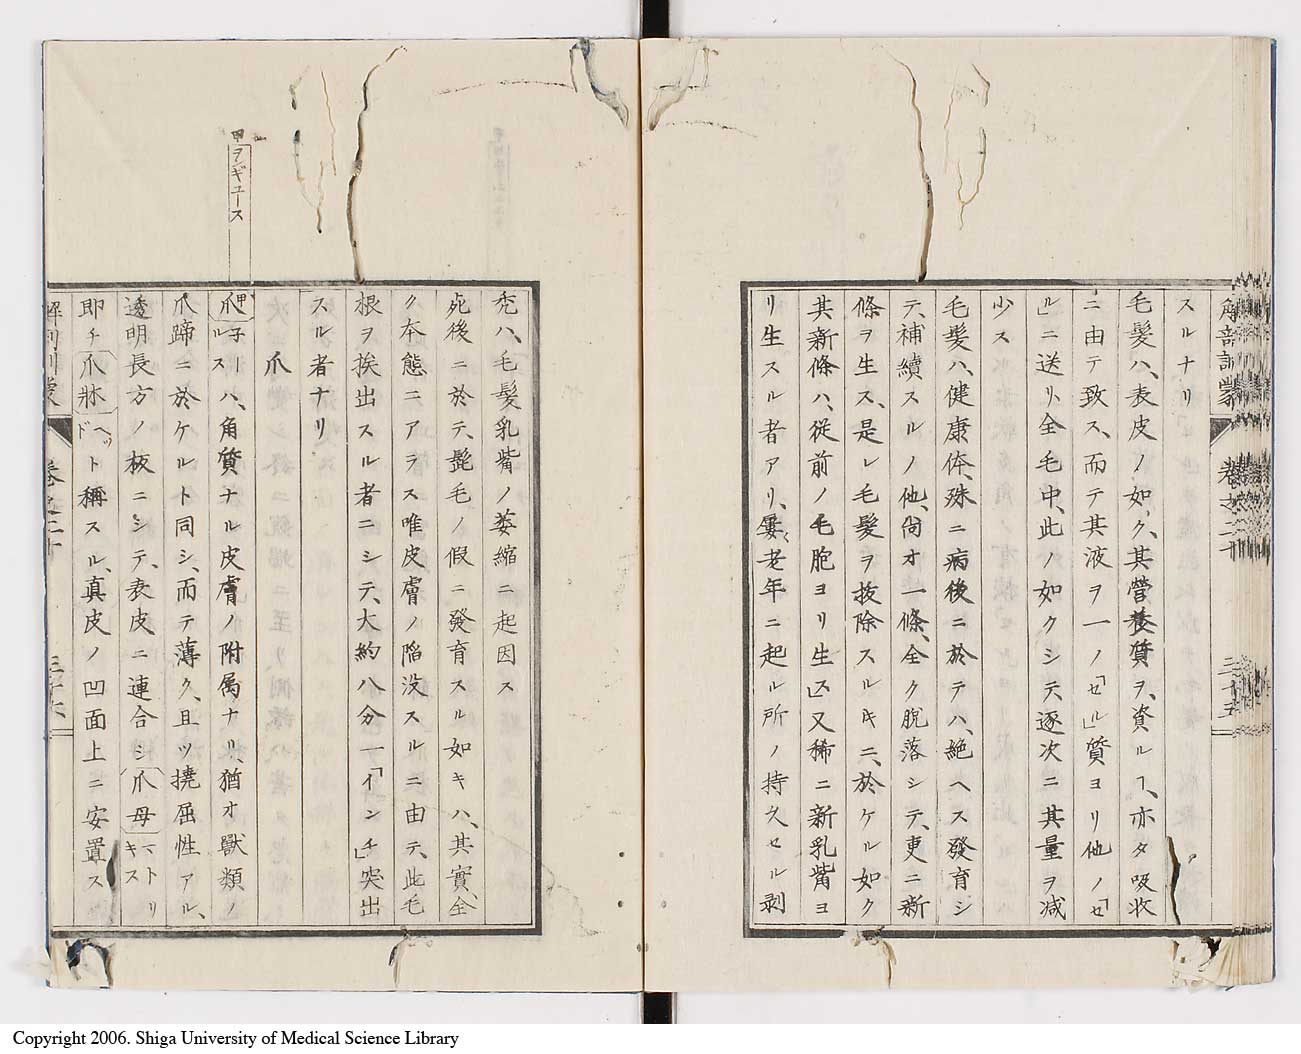 解剖訓蒙 卷之二十 三十五
スルナリ
毛髮ハ、表皮ノ如ク、其營養質ヲ、資ルヿ、亦タ吸收
ニ由テ致ス、而テ其液ヲ一ノ「セル」質ヨリ他ノ「セ
ル」ニ送リ、全毛中、此ノ如クシテ逐次ニ其量ヲ減
少ス
毛髮ハ、健康体、殊ニ病後ニ於テハ、絶ヘス發育シ
テ、補續スルノ他、尙オ一條、全ク脫落シテ、更ニ新
條ヲ生ス、是レ毛髮ヲ拔除スルキニ、於ケル如ク
其新條ハ、従前ノ毛胞ヨリ生ス」又稀ニ新乳觜ヨ
リ生スル者アリ、屢〻老年ニ起ル所ノ持久セル剥
禿ハ、毛髮乳觜ノ萎縮ニ起因ス
死後ニ於テ、髭毛ノ假ニ發育スル如キハ、其實、全
ク本態ニアラス唯皮膚ノ陷没スルニ由テ、此毛
根ヲ挨出スル者ニシテ、大約八分一「インチ」突出
スル者ナリ
爪
甲ヲギュース
爪甲子ールスハ、角質ナル皮膚ノ附属ナリ、猶オ獸類ノ
爪蹄ニ於ケルト同シ、而テ薄ク、且ツ撓屈性アル、
透明長方ノ板ニシテ、表皮ニ連合シ爪母マトリキス
即チ爪牀ヘッドト稱スル、真皮ノ凹面上ニ安置ス
解剖訓蒙 卷之二十 三十六